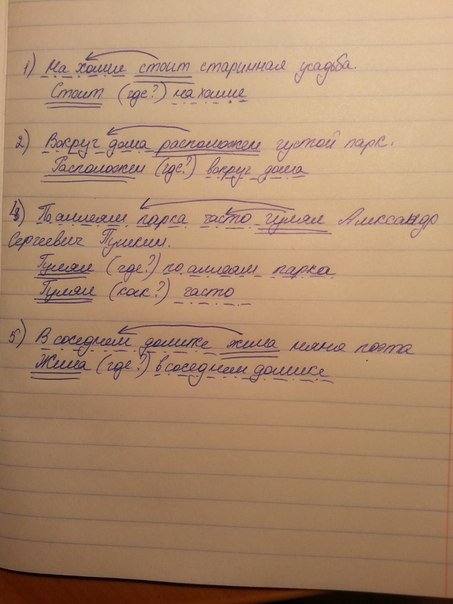 1) На холме стоит старинная усадьба.
Стоит (где?) на холме
2) Вокруг дома расположен густой парк.
Расположен (где?) вокруг дома
4) По аллеям парка часто гулял Александр
Сергеевич Пушкин.
Гулял (где?) по аллеям парка
Гулял (как?) часто
5) В соседнем домике жила няня поэта
Жила (где?) в соседнем домике